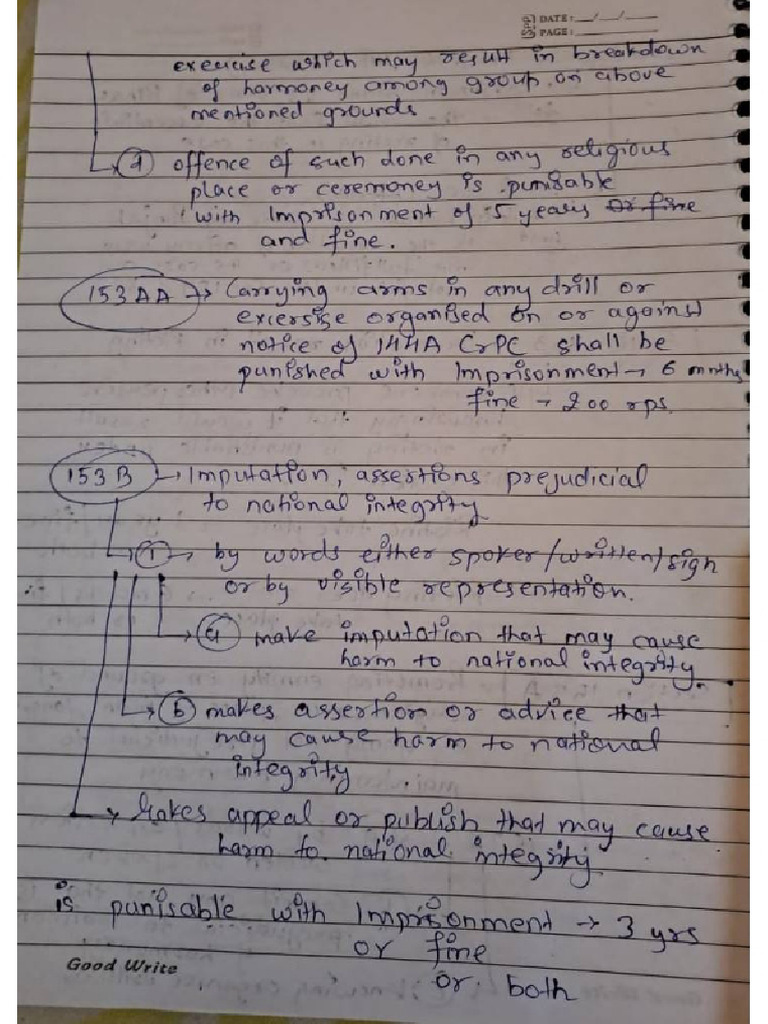 DATE: __/__/____
PAGE: ________
exercise which may result in breakdown
of harmoney among group on above
mentioned grounds
② offence of such done in any religious
place or ceremoney is punisable
with Imprisonment of 5 years or fine
and fine.
153AA → Carrying arms in any drill or
excersise organised on or against
notice of 144A CrPC shall be
punished with Imprisonment → 6 mnths
fine → 200 rps.
153B → Imputation, assertions prejudicial
to national integrity
① → by words either spoken/written/sign
or by visible representation.
→ ⓐ make imputation that may cause
harm to national integrity.
→ ⓑ makes assertion or advice that
may cause harm to national
integrity
→ Makes appeal or publish that may cause
harm to national integrity
is punisable with Imprisonment → 3 yrs
or fine
or both
Good Write